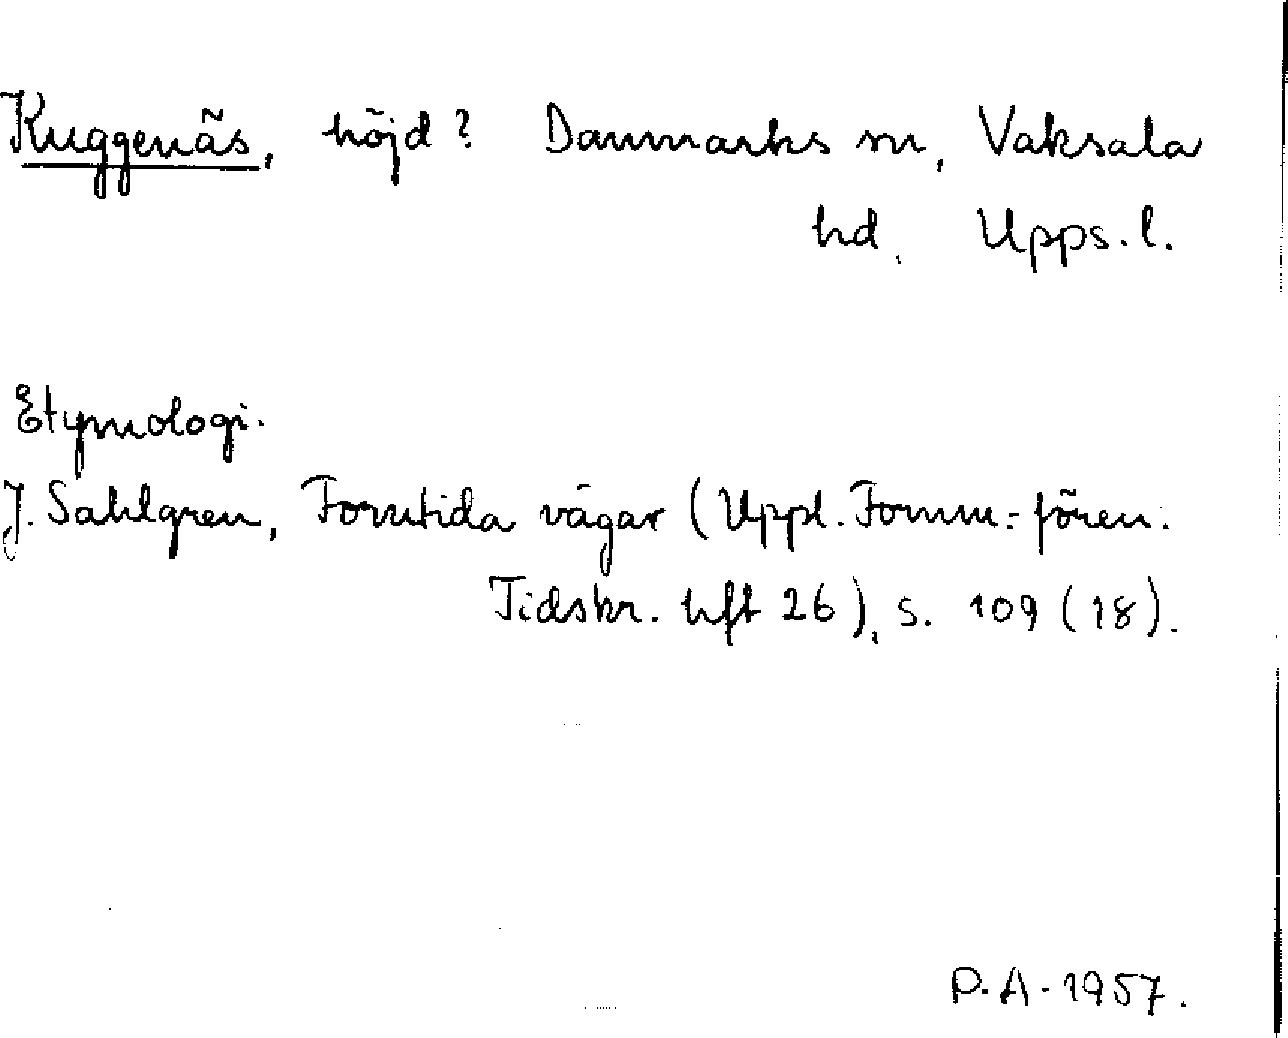 Kuggenäs, höjd? Danmarks sn, Vaksala
hd, Upps. l.
Etymologi.
J. Sahlgren, Forntida vägar (Uppl. Fornm.-fören.
Tidskr. hft 26), s. 109 (18).
P.A. 1957.